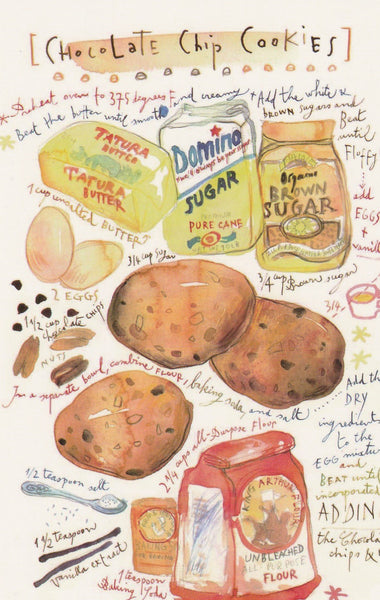 [CHOCOLATE CHIP COOKIES]
*Preheat oven to 375 degrees F
Beat the butter until smooth and creamy
+Add the white &
BROWN sugars and
Beat
until
Fluffy
add
EGGS
+
vanilla
TATURA
BUTTER
TATURA
BUTTER
1 cup unsalted BUTTER
Domino
SUGAR
PURE CANE
3/4 cup Sugar
Organic
BROWN
SUGAR
3/4 cup Brown sugar
3/4
2 EGGS
1 1/2 cup
chocolate CHIPS
NUTS
In a separate bowl, combine FLOUR, baking soda, and salt
Add the
DRY
ingredients
to the
EGG mixture
and
BEAT until
incorporated
ADDING
the Chocolate
chips &
1/2 teaspoon salt
2 1/4 cups all-Purpose Flour
KING ARTHUR FLOUR
UNBLEACHED
ALL PURPOSE
FLOUR
1 1/2 teaspoon
vanilla extract
1 teaspoon
Baking Soda